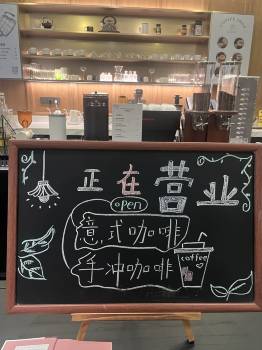 正在营业
open
意式咖啡
手冲咖啡
coffee